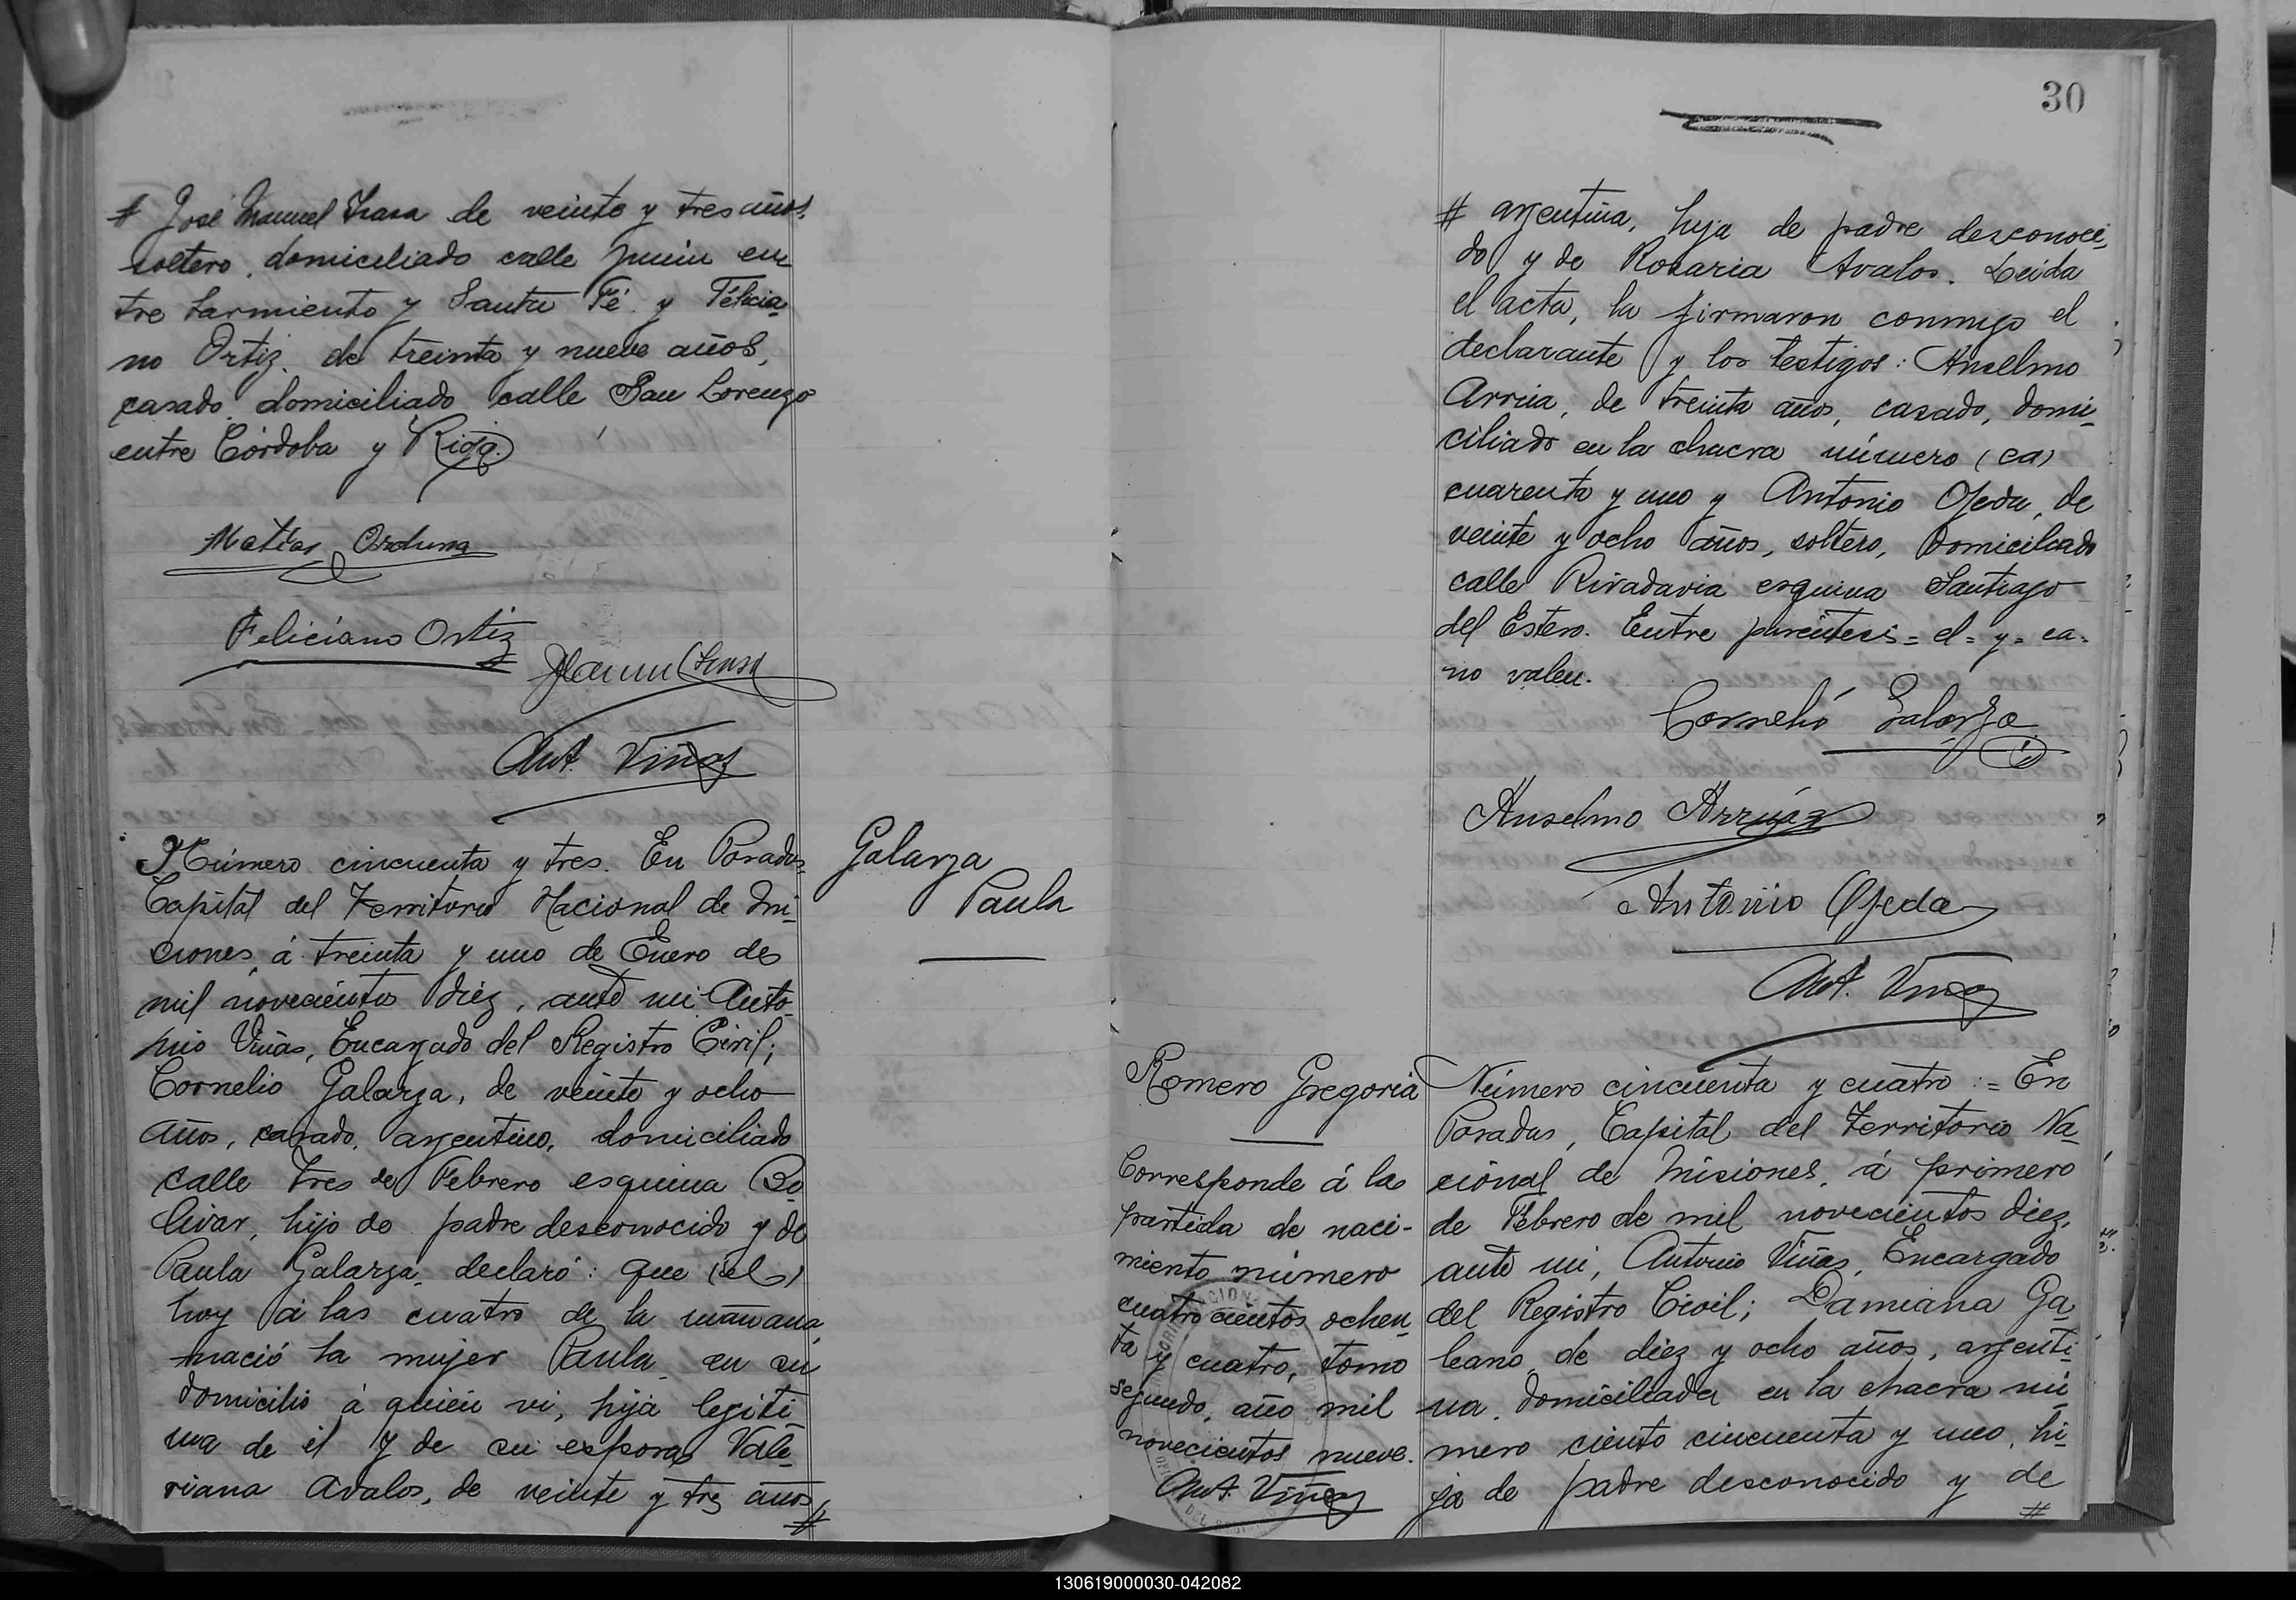 # José Manuel Irasa de veinte y tres años,
soltero, domiciliado calle Junín en
tre Sarmiento y Santa Fé y Félicia_
no Ortiz, de treinta y nueve años,
casado, domiciliado calle San Lorenzo
entre Córdoba y Rioja.
Matías Orduna
Feliciano Ortiz
Ant. Viñas
Número cincuenta y tres. En Posadas
Capital del Territorio Nacional de Mi_
siones, á treinta y uno de Enero de
mil novecientos diez, ante mi Anto_
nio Viñas, Encargado del Registro Civil;
Cornelio Galarza, de veinte y ocho
años, casado, argentino, domiciliado
calle Tres de Febrero esquina Bo_
livar, hijo de padre desconocido y de
Paula Galarza, declaró: que (el)
hoy á las cuatro de la mañana,
nació la mujer Paula en su
domicilio á quién vi, hija legiti_
ma de él y de su esposa Vale_
riana Avalos, de veinte y tres años, #
Galarza
Paula
30
# argentina, hija de padre desconoci_
do y de Rosaria Avalos. Leida
el acta, la firmaron conmigo el
declarante y los testigos: Anselmo
Arrua, de treinta años, casado, domi_
ciliado en la chacra número (ca)
cuarenta y uno y Antonio Ojeda, de
veinte y ocho años, soltero, domiciliado
calle Rivadavia esquina Santiago
del Estero. Entre paréntesis = el = y = ca.
no valen.
Cornelió Galarza
Anselmo Arrúa
Antonio Ojeda
Ant. Viñas
Romero Gregoria
Corresponde á la
partida de naci-
miento número
cuatrocientos ochen_
ta y cuatro, tomo
segundo, año mil
novecientos nueve.
Ant. Viñas
Número cincuenta y cuatro := En
Posadas, Capital del Territorio Na_
cional de Misiones, á primero
de Febrero de mil novecientos diez,
ante mi, Antonio Viñas, Encargado
del Registro Civil; Damiana Ga_
leano, de diez y ocho años, argenti_
na, domiciliada en la chacra nú_
mero ciento cincuenta y uno, hi_
ja de padre desconocido y de
#
130619000030-042082